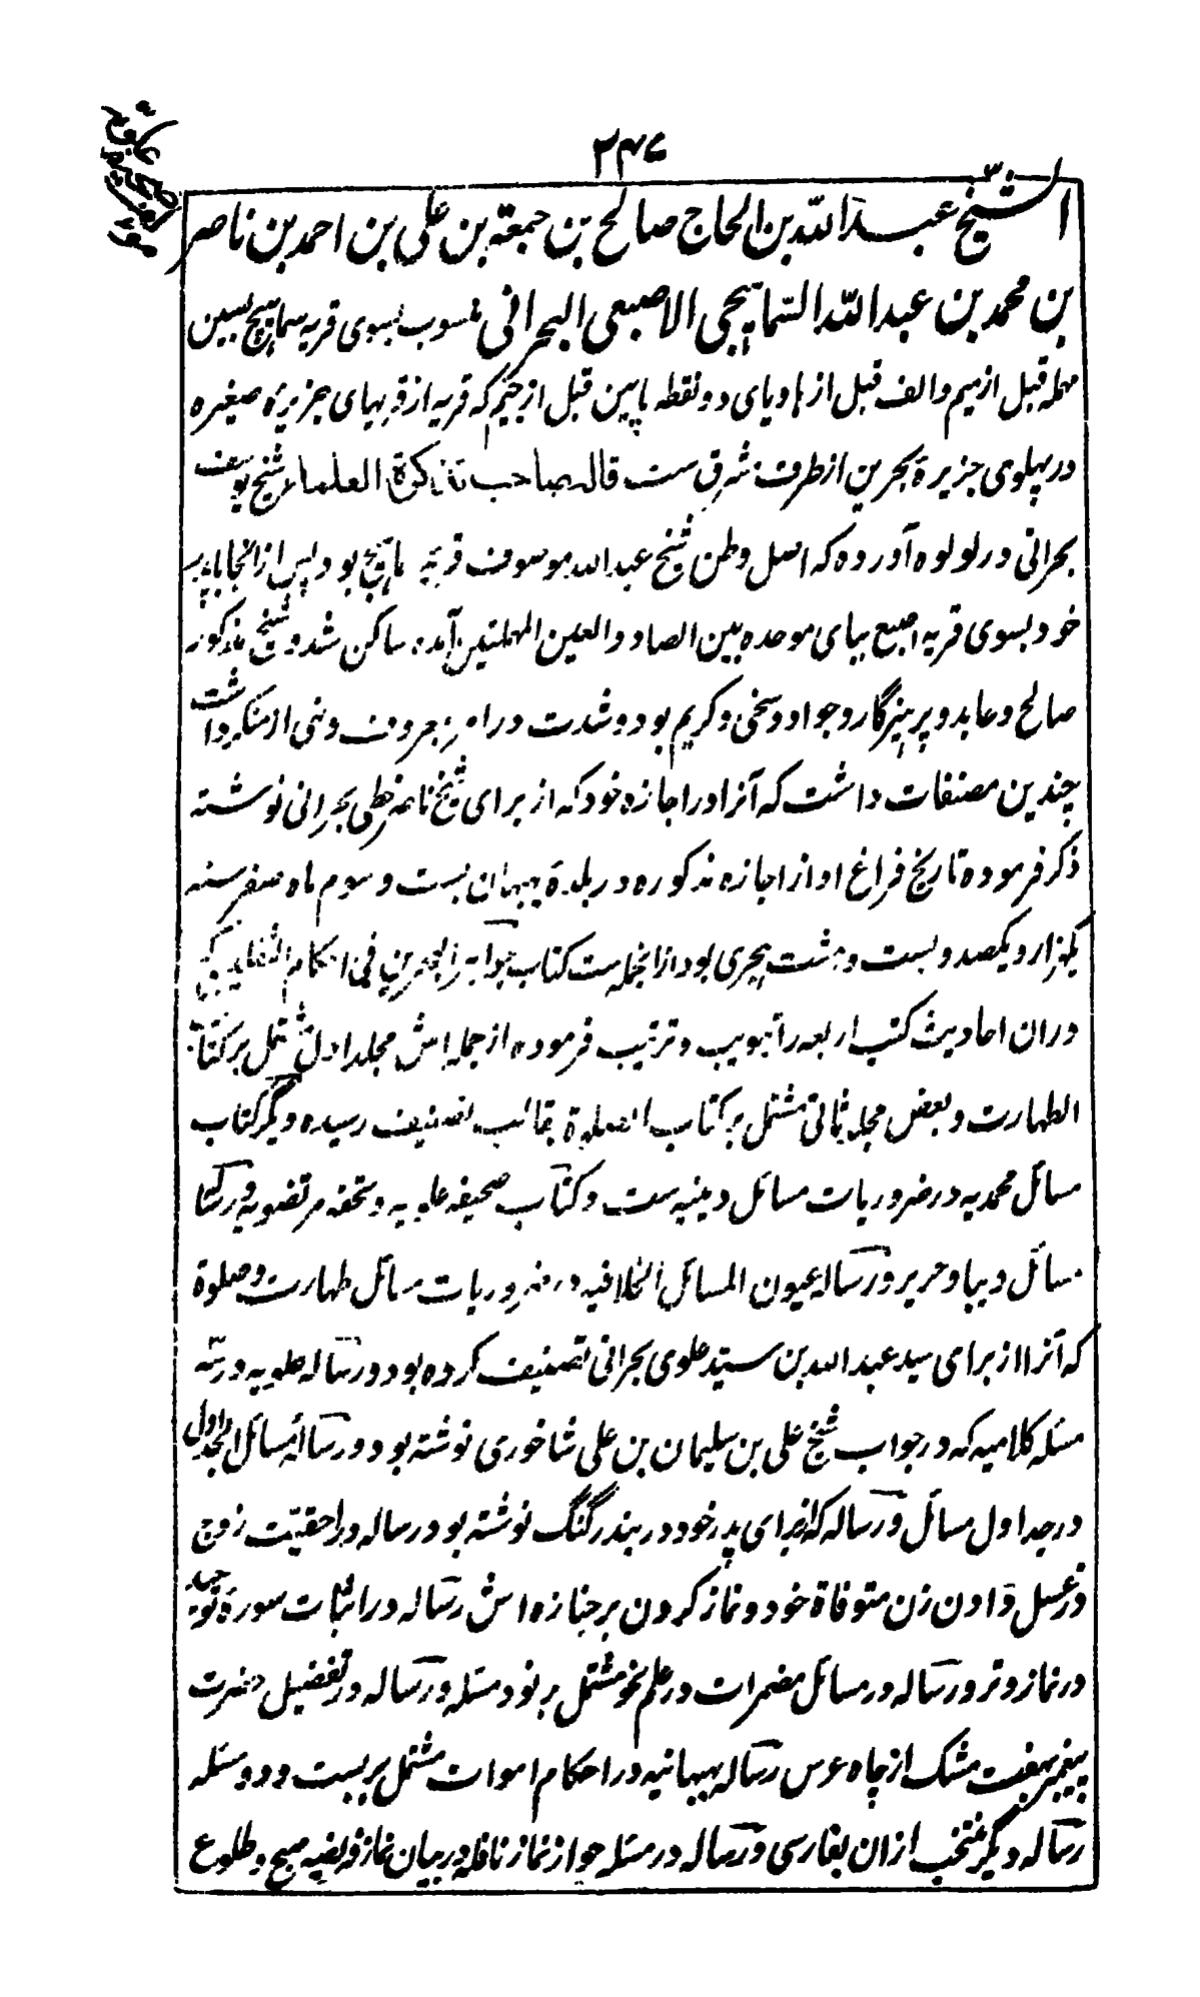 ۲۴۷
الشیخ عبد اللہ بن الحاج صالح بن جمعة بن علی بن احمد بن ناصر
بن محمد بن عبد اللہ السماہیجی الاصبعی البحرانی منسوب بسوی قریہ سماہیج بسین
مہملہ قبل از میم والف قبل از ہا ویای دو نقطہ پایین قبل از جیم کہ قریہ از قریہای جزیرۂ صغیرہ
در پہلوی جزیرۂ بحرین از طرف شرق ست قالہ صاحب تذکرة العلماء شیخ یوسف
بحرانی در لولوہ آوردہ کہ اصل وطن شیخ عبد اللہ موصوف قریہ ماہیج بود پس از انجا با پدر
خود بسوی قریہ اصبع ببای موحدہ بین الصاد والعین المہملتین آمدہ ساکن شد و شیخ مذکور
صالح و عابد و پرہیزگار و جواد و سخی و کریم بود و شدت در امر بمعروف و نہی از منکر داشت
چندین مصنفات داشت کہ آنرا در اجازہ خود کہ از برای شیخ ناصر خطی بحرانی نوشتہ
ذکر فرمودہ تاریخ فراغ او از اجازہ مذکورہ در بلدۂ بہبہان بست و سوم ماہ صفر سنہ
یکہزار و یکصد و بست و ہشت ہجری بود از انجملہ ست کتاب جواہر البحرین فی احکام الثقلین کہ
دران احادیث کتب اربعہ را تبویب و ترتیب فرمودہ از جملہ اش مجلد اول مشتمل بر کتاب
الطہارت و بعض مجلد ثانی مشتمل بر کتاب الصلوة بقالب تصنیف رسیدہ و دیگر کتاب
مسائل محمدیہ در ضروریات مسائل دینیہ ست و کتاب صحیفہ علویہ و تحفہ مرتضویہ و رسالہ
مسائل دیبا و حریر و رسالہ عیون المسائل الخلافیہ در ضروریات مسائل طہارت و صلوة
کہ آنرا از برای سید عبد اللہ بن سید علوی بحرانی تصنیف کردہ بود و رسالہ علویہ در سہ
مسئلہ کلامیہ کہ در جواب شیخ علی بن سلیمان بن علی شاخوری نوشتہ بود و رسالہ مسائل الجداول
در جداول مسائل و رسالہ کہ از برای پدر خود در بندر گنگ نوشتہ بود رسالہ در احقیت زوج
در غسل دادن زن متوفاة خود و نماز کردن بر جنازہ اش رسالہ در اثبات سورۂ توحید
در نماز وتر و رسالہ در مسائل مضمرات در علم نحو مشتمل بر نود مسئلہ و رسالہ در تغضیل حضرت
پیغمبر بہفت مشک از چاہ عرس رسالہ بہبہانیہ در احکام اموات مشتمل بر بست و دو مسئلہ
رسالہ دیگر منتخب ازان بفارسی و رسالہ در مسئلہ جواز نماز نافلہ در بیان نماز فریضہ صبح و طلوع